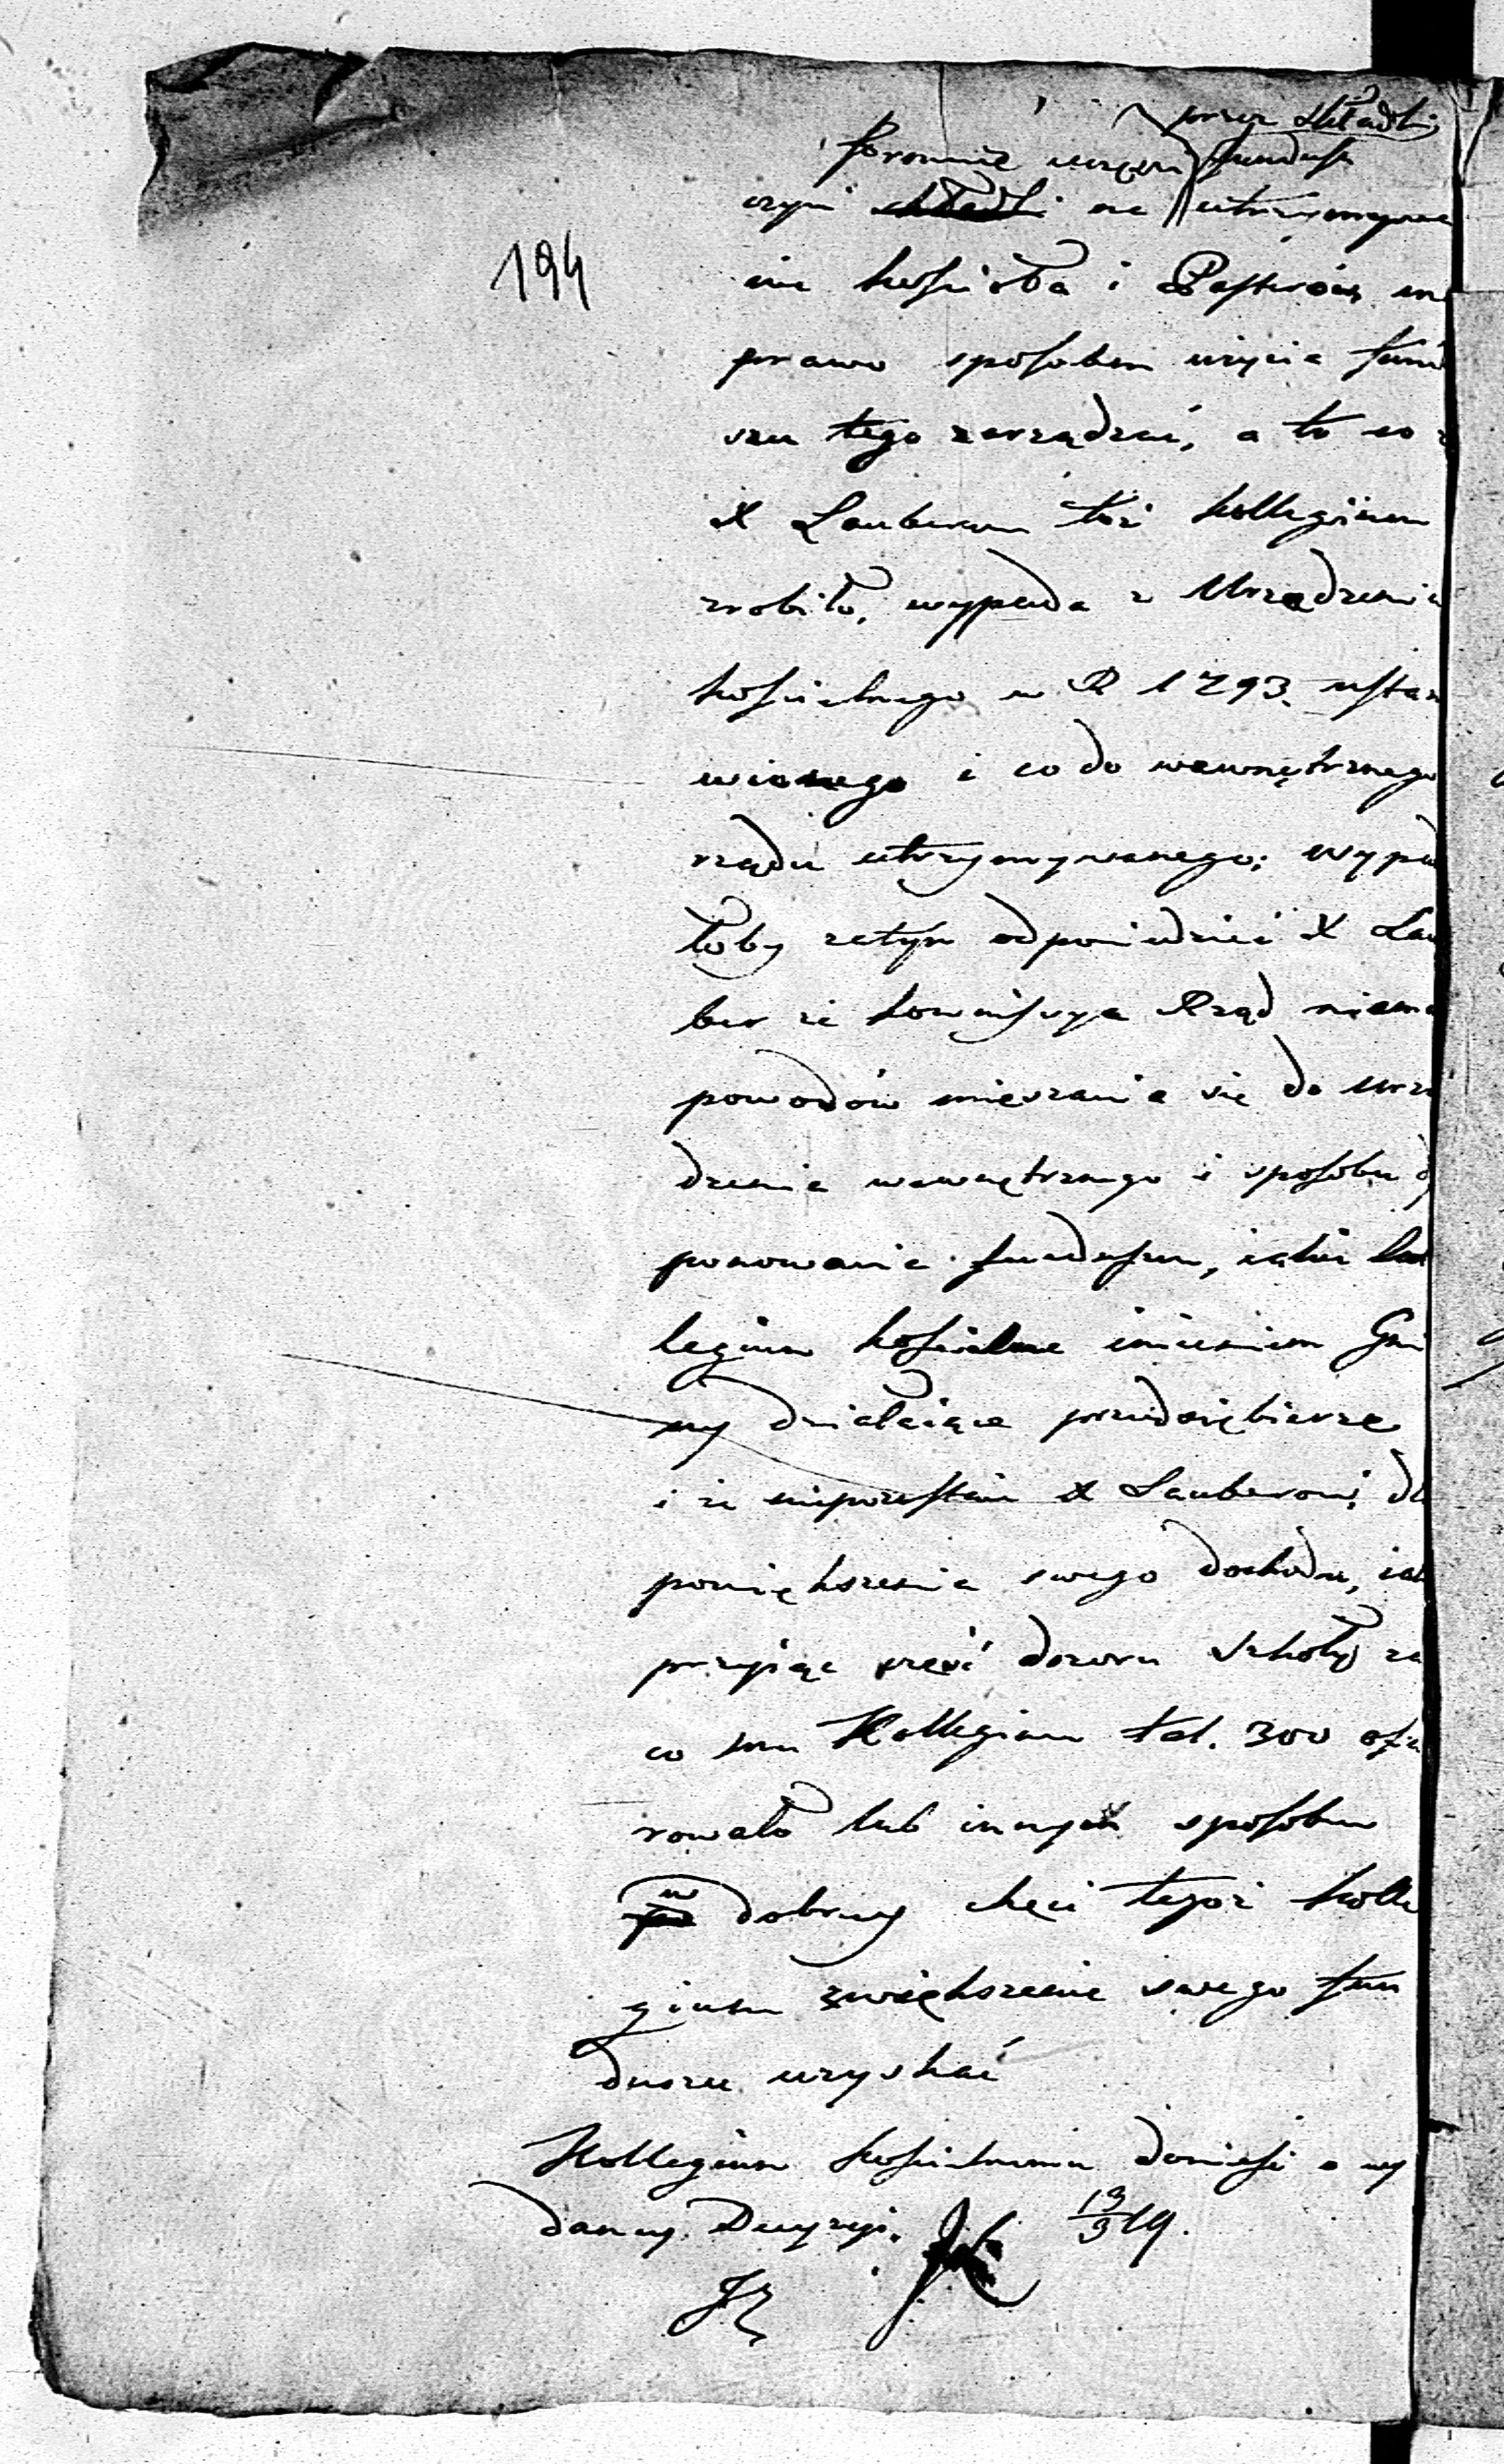 przez składki
formuie więcy fundusz
czyni składki na utrzymywa
nie kościoła i Pasterów ma
prawo sposobem użycia fun
szu tego zarządzać, a to co z
X Lauberem też kollegium
zrobiło, wypada z Urządzenia
kościelnego w R 1793. ustan
wionego i co do wewnętrznego
rządu utrzymywanego; wypad
łoby zatym odpowiedzieć X Lau
ber że kommissya Rząd niema
powodów mięszania się do Urzą
dzenia wewnętrznego i sposobu
ponowania funduszu, iakie kol
legium kościelne imieniem Gmi
ny działaiące przedsiębierze
i że niepozostaie X Lauberowi dla
powiększenia swego dochodu, iak
przyiąć część dozoru Szkoły za
co mu Kollegium tal. 300 ofia
rowało lub innym sposobem
w dobrey chęci tegoż kolle
gium zwiększenie swego fun
duszu uzyskać
Kollegium kościelnemu donieść o wy
daney Decyzyi. 13/3 19.
194